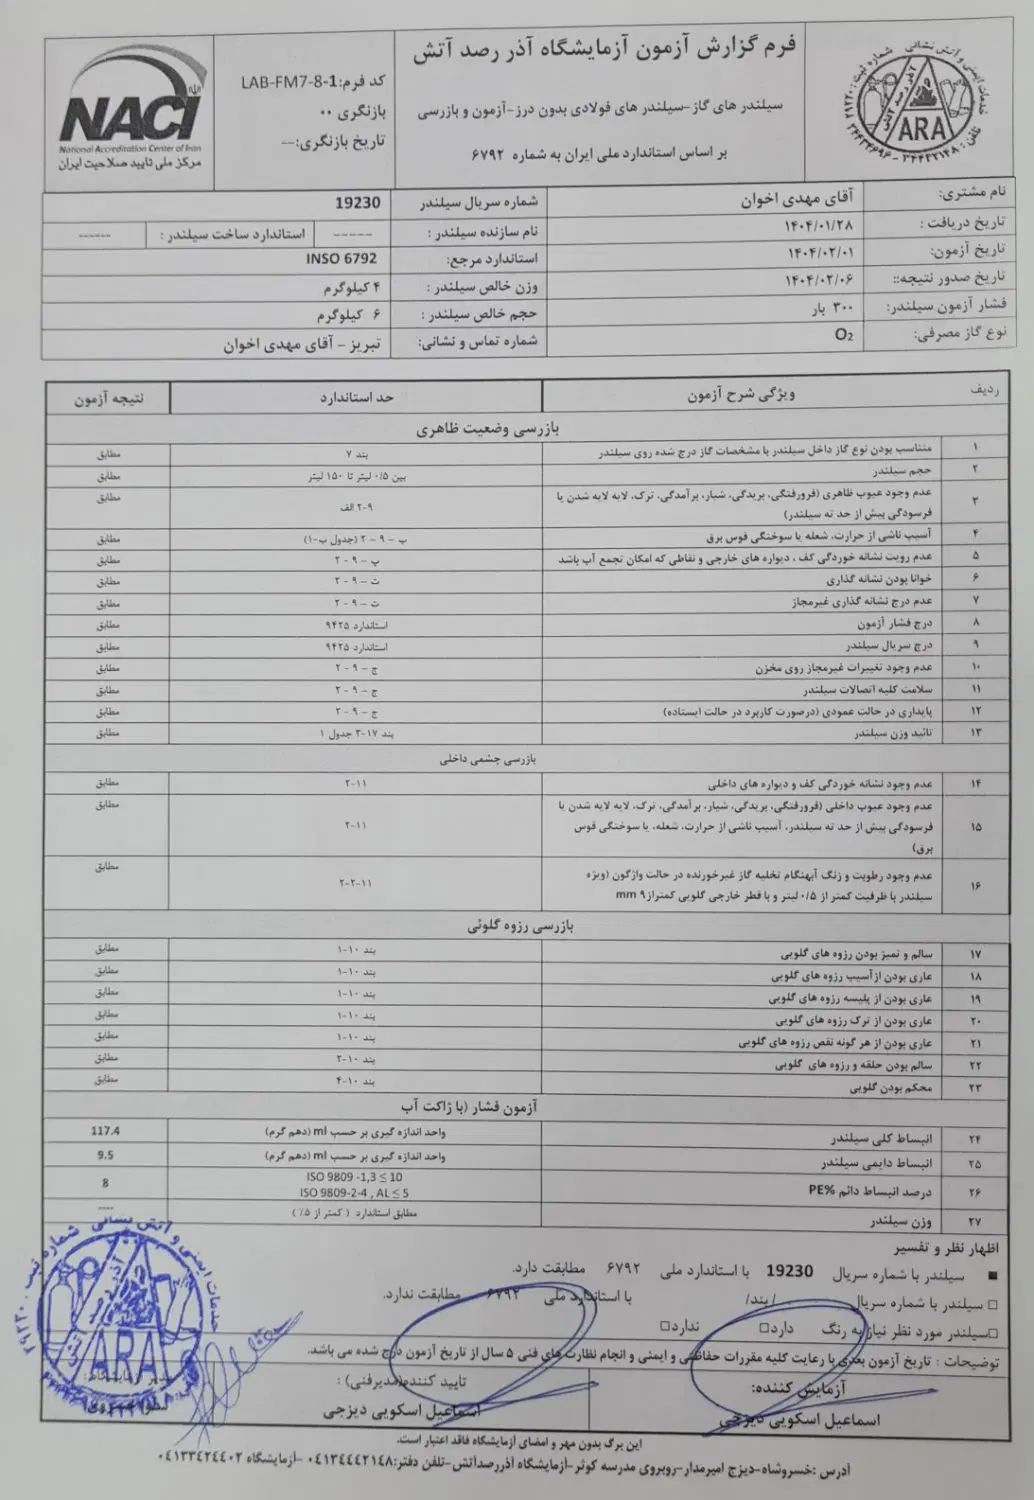 NACI
National Accreditation Center of Iran
مرکز ملی تایید صلاحیت ایران
کد فرم: LAB-FM7-8-1
بازنگری ۰۰
تاریخ بازنگری:--
فرم گزارش آزمون آزمایشگاه آذر رصد آتش
سیلندر های گاز-سیلندر های فولادی بدون درز-آزمون و بازرسی
بر اساس استاندارد ملی ایران به شماره ۶۷۹۲
خدمات ایمنی و آتش نشانی شماره ثبت:
آذر رصد آتش
ARA
نام مشتری: آقای مهدی اخوان شماره سریال سیلندر 19230
تاریخ دریافت : ۱۴۰۴/۰۱/۲۸ نام سازنده سیلندر : ----- استاندارد ساخت سیلندر : ------
تاریخ آزمون: ۱۴۰۴/۰۲/۰۱ استاندارد مرجع: INSO 6792
تاریخ صدور نتیجه:: ۱۴۰۴/۰۲/۰۶ وزن خالص سیلندر : ۴ کیلوگرم
فشار آزمون سیلندر: ۳۰۰ بار حجم خالص سیلندر : ۶ کیلوگرم
نوع گاز مصرفی: O2 شماره تماس و نشانی: تبریز - آقای مهدی اخوان
ردیف ویژگی شرح آزمون حد استاندارد نتیجه آزمون
بازرسی وضعیت ظاهری
۱ متناسب بودن نوع گاز داخل سیلندر با مشخصات گاز درج شده روی سیلندر بند ۷ مطابق
۲ حجم سیلندر بین ۰/۵ لیتر تا ۱۵۰ لیتر مطابق
۳ عدم وجود عیوب ظاهری (فرورفتگی، بریدگی، شیار، برآمدگی، ترک، لایه لایه شدن یا
فرسودگی بیش از حد ته سیلندر) ۹-۲ الف مطابق
۴ آسیب ناشی از حرارت، شعله یا سوختگی قوس برق ب - ۹ - ۲ (جدول ب-۱) مطابق
۵ عدم رویت نشانه خوردگی کف ، دیواره های خارجی و نقاطی که امکان تجمع آب باشد پ - ۹ - ۲ مطابق
۶ خوانا بودن نشانه گذاری ت - ۹ - ۲ مطابق
۷ عدم درج نشانه گذاری غیرمجاز ت - ۹ - ۲ مطابق
۸ درج فشار آزمون استاندارد ۹۴۲۵ مطابق
۹ درج سریال سیلندر استاندارد ۹۴۲۵ مطابق
۱۰ عدم وجود تغییرات غیرمجاز روی مخزن ج - ۹ - ۲ مطابق
۱۱ سلامت کلیه اتصالات سیلندر ج - ۹ - ۲ مطابق
۱۲ پایداری در حالت عمودی (درصورت کاربرد در حالت ایستاده) ج - ۹ - ۲ مطابق
۱۳ تائید وزن سیلندر بند ۱۷-۳ جدول ۱ مطابق
بازرسی چشمی داخلی
۱۴ عدم وجود نشانه خوردگی کف و دیواره های داخلی ۱۱-۲ مطابق
۱۵ عدم وجود عیوب داخلی (فرورفتگی، بریدگی، شیار، برآمدگی، ترک، لایه لایه شدن یا
فرسودگی بیش از حد ته سیلندر، آسیب ناشی از حرارت، شعله، یا سوختگی قوس
برق) ۱۱-۲ مطابق
۱۶ عدم وجود رطوبت و زنگ آبهنگام تخلیه گاز غیرخورنده در حالت واژگون (ویژه
سیلندر با ظرفیت کمتر از ۰/۵ لیتر و با قطر خارجی گلویی کمتراز ۹ mm ۱۱-۲-۲ مطابق
بازرسی رزوه گلوئی
۱۷ سالم و تمیز بودن رزوه های گلویی بند ۱۰-۱ مطابق
۱۸ عاری بودن از آسیب رزوه های گلویی بند ۱۰-۱ مطابق
۱۹ عاری بودن از پلیسه رزوه های گلویی بند ۱۰-۱ مطابق
۲۰ عاری بودن از ترک رزوه های گلویی بند ۱۰-۱ مطابق
۲۱ عاری بودن از هر گونه نقص رزوه های گلویی بند ۱۰-۱ مطابق
۲۲ سالم بودن حلقه و رزوه های گلویی بند ۱۰-۲ مطابق
۲۳ محکم بودن گلویی بند ۱۰-۴ مطابق
آزمون فشار (با ژاکت آب
۲۴ انبساط کلی سیلندر واحد اندازه گیری بر حسب ml (دهم گرم) 117.4
۲۵ انبساط دایمی سیلندر واحد اندازه گیری بر حسب ml (دهم گرم) 9.5
۲۶ درصد انبساط دائم PE% ISO 9809 -1,3 ≤ 10
ISO 9809-2-4 , AL ≤ 5 8
۲۷ وزن سیلندر مطابق استاندارد ( کمتر از ۵٪ ) ----
اظهار نظر و تفسیر
■ سیلندر با شماره سریال 19230 با استاندارد ملی ۶۷۹۲ مطابقت دارد.
□ سیلندر با شماره سریال / بند/ با استاندارد ملی ۶۷۹۲ مطابقت ندارد.
□سیلندر مورد نظر نیاز به رنگ دارد□ ندارد□
توضیحات : تاریخ آزمون بعدی با رعایت کلیه مقررات حفاظتی و ایمنی و انجام نظارت های فنی ۵ سال از تاریخ آزمون درج شده می باشد.
آزمایش کننده: تایید کننده(مدیرفنی) : مدیر آزمایشگاه:
اسماعیل اسکویی دیزجی اسماعیل اسکویی دیزجی
خدمات ایمنی و آتش نشانی شماره ثبت:
ARA
این برگ بدون مهر و امضای آزمایشگاه فاقد اعتبار است.
آدرس :خسروشاه-دیزج امیرمدار-روبروی مدرسه کوثر-آزمایشگاه آذررصدآتش-تلفن دفتر:۰۴۱۳۴۴۴۲۱۴۸ -آزمایشگاه ۰۴۱۳۳۴۲۴۴۰۲